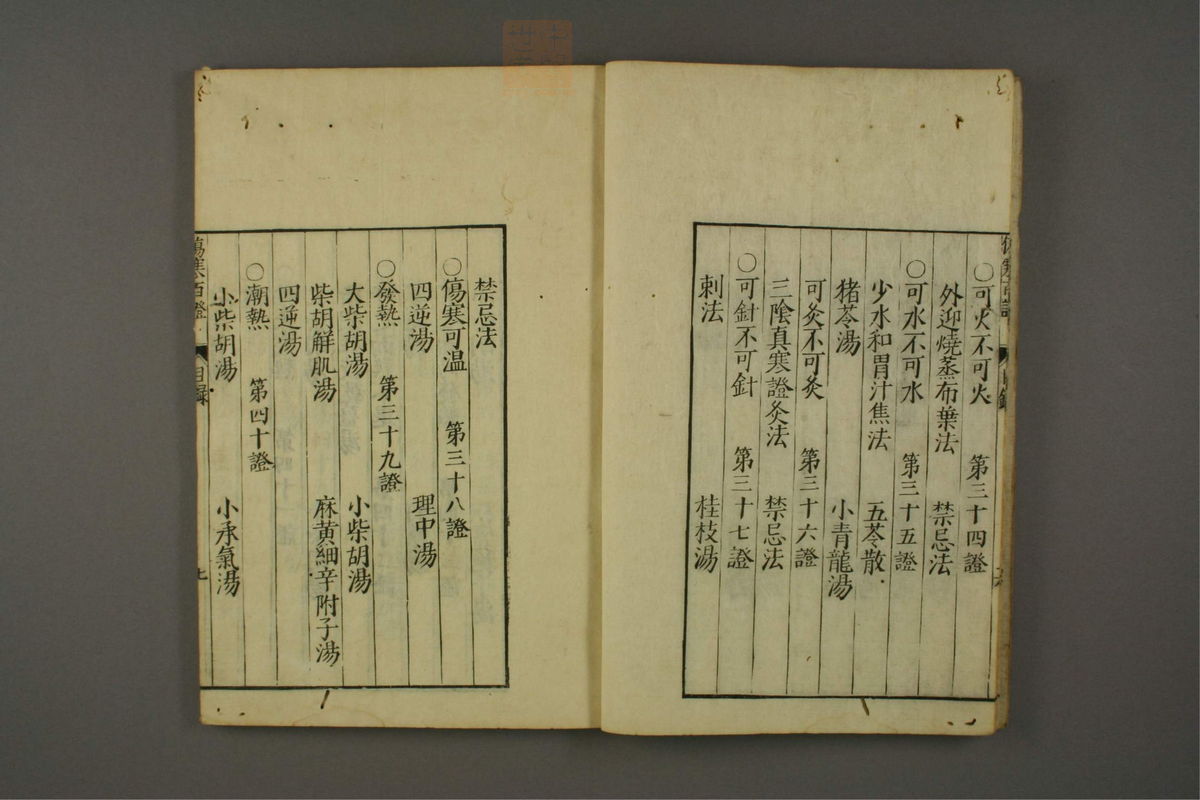 ○可火不可火 第三十四證
外迎燒蒸布葉法 禁忌法
○可水不可水 第三十五證
少水和胃汁焦法 五苓散
猪苓湯 小青龍湯
可灸不可灸 第三十六證
三陰真寒證灸法 禁忌法
○可針不可針 第三十七證
刺法 桂枝湯
禁忌法
○傷寒可温 第三十八證
四逆湯 理中湯
○發熱 第三十九證
大柴胡湯 小柴胡湯
柴胡解肌湯 麻黄細辛附子湯
四逆湯
○潮熱 第四十證
小柴胡湯 小承氣湯
傷寒百證 目録 七